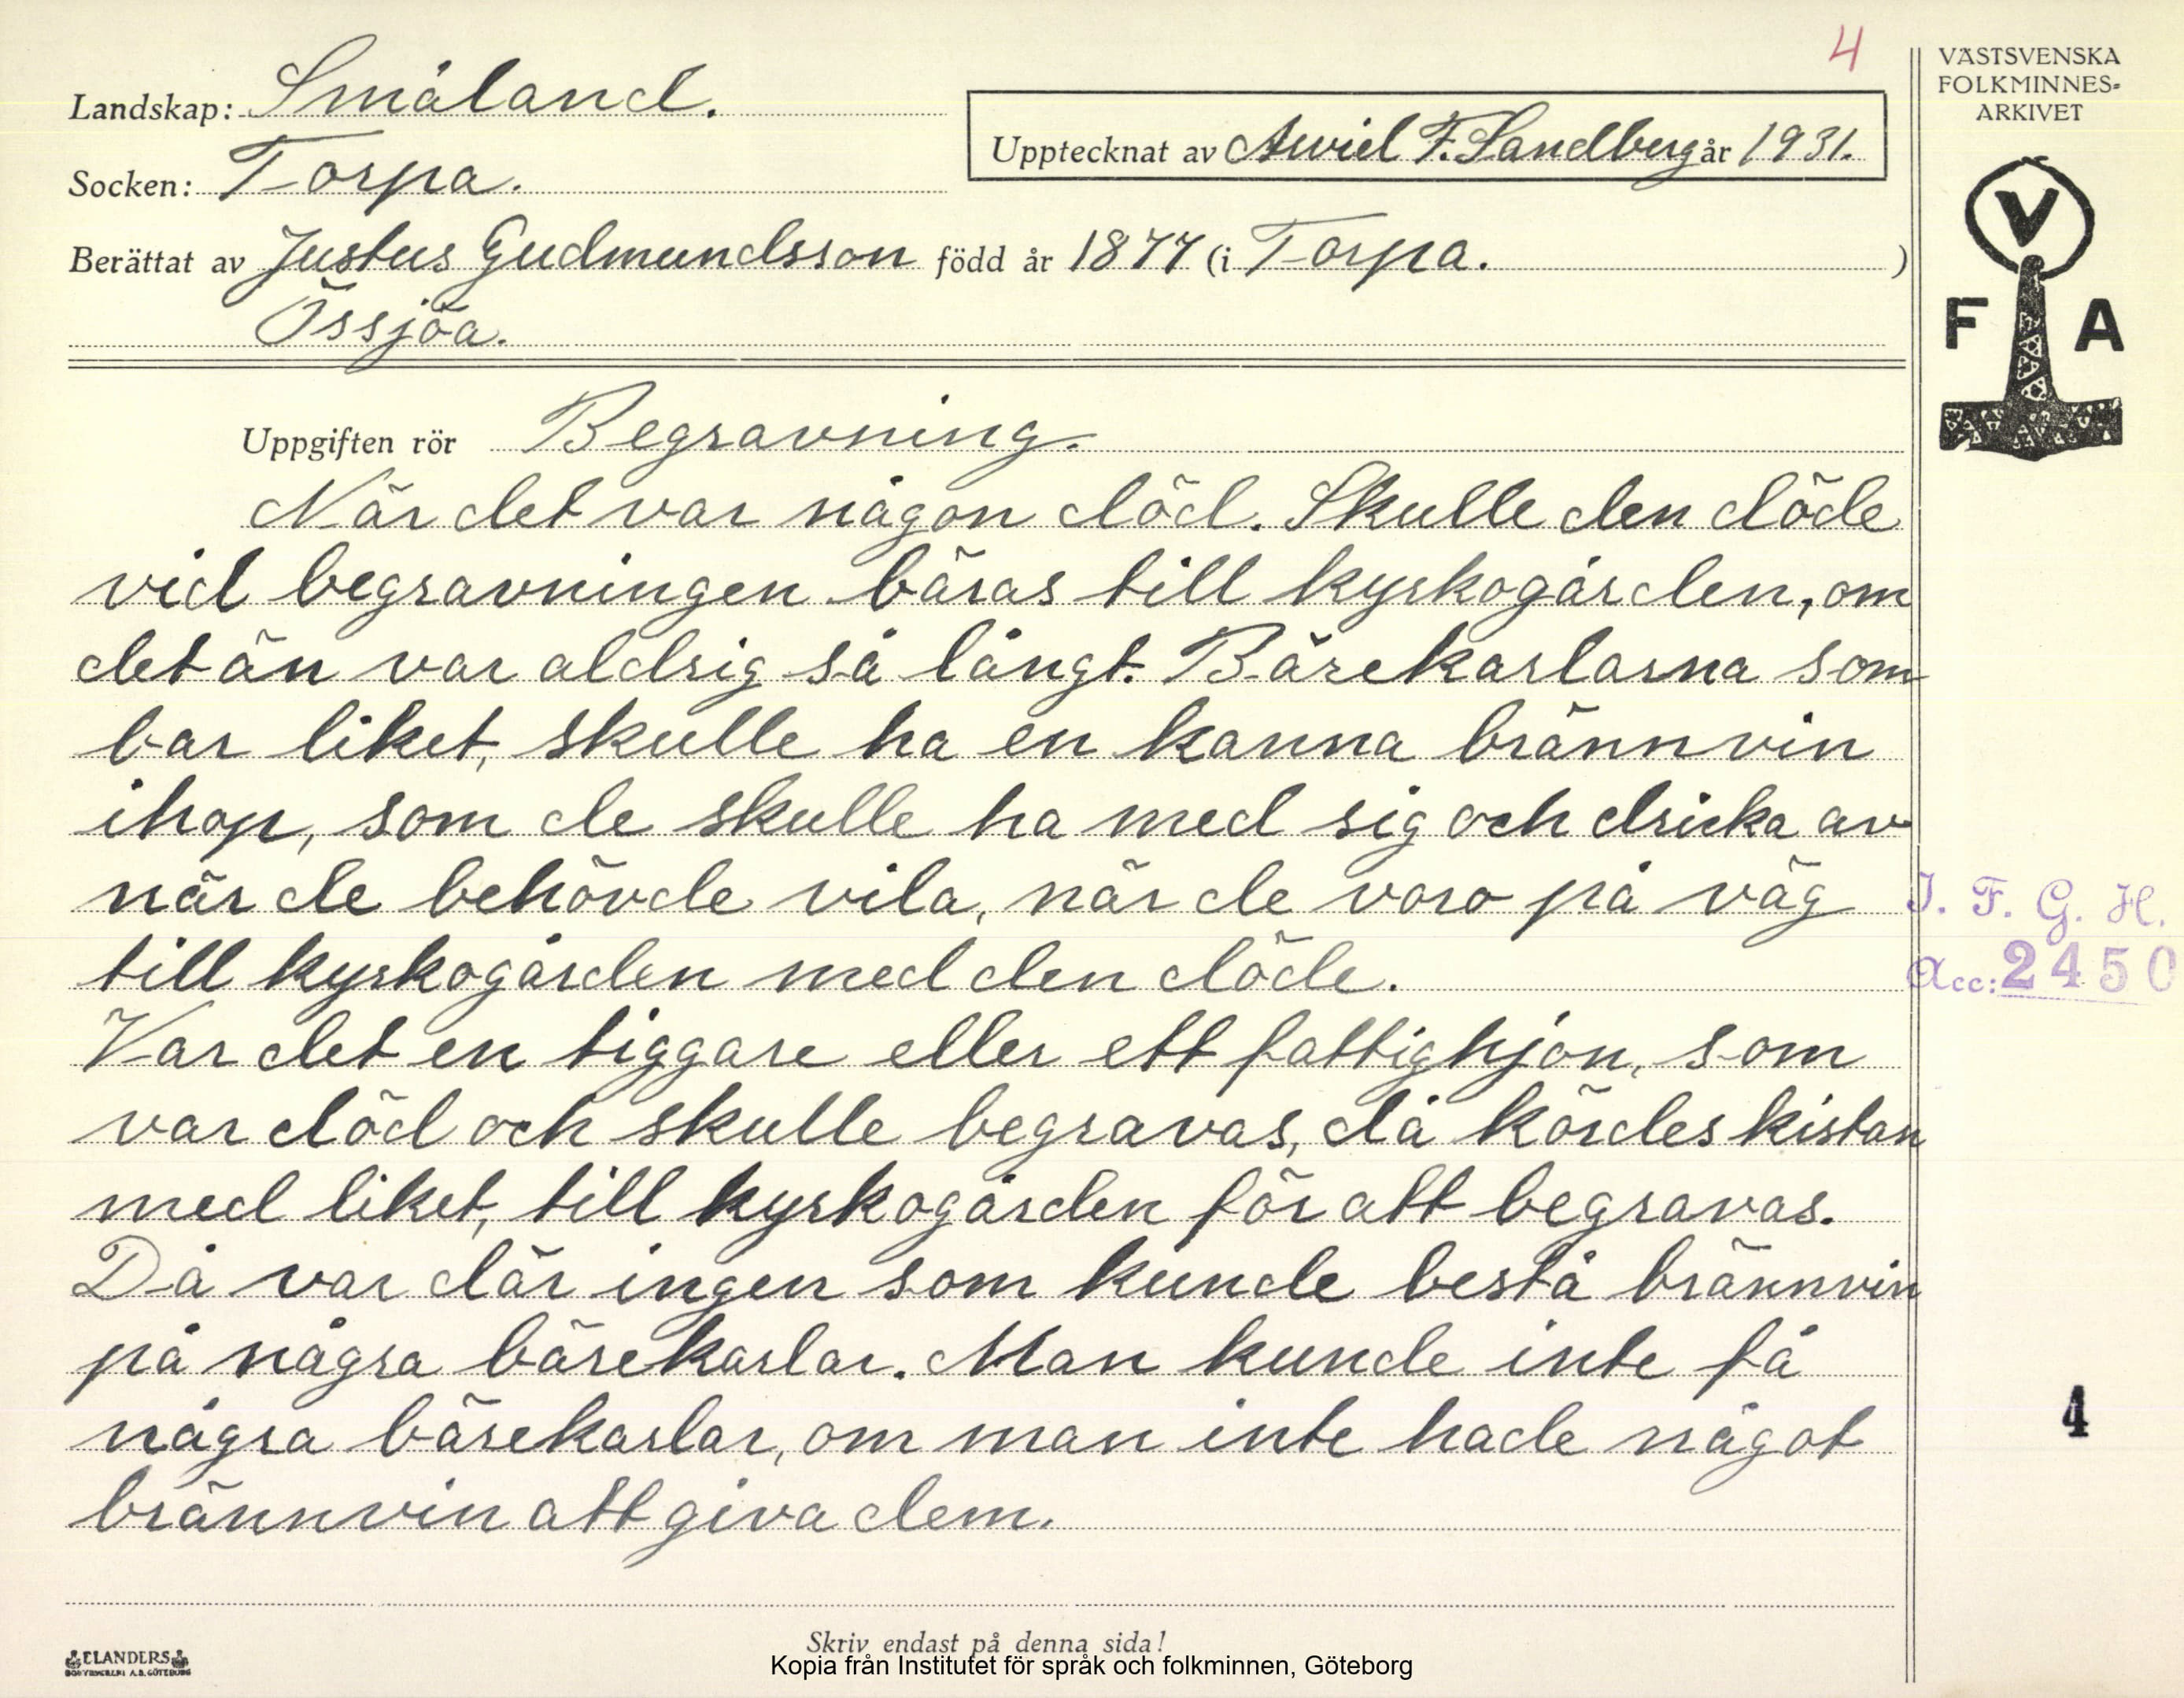 4
VÄSTSVENSKA
FOLKMINNES-
ARKIVET
Landskap: Småland.
Upptecknat av Arvid F. Sandberg år 1931.
Socken: Torpa.
Berättat av Justus Gudmundsson född år 1877 (i Torpa. )
Össjöa.
V
F A
Uppgiften rör Begravning.
När det var någon död. Skulle den döde
vid begravningen bäras till kyrkogården, om
det än var aldrig så långt. Bärekarlarna som
bar liket, skulle ha en kanna brännvin
ihop, som de skulle ha med sig och dricka av
när de behövde vila, när de voro på väg
till kyrkogården med den döde.
Var det en tiggare eller ett fattighjon, som
var död och skulle begravas, då kördes kistan
med liket, till kyrkogården för att begravas.
Då var där ingen som kunde bestå brännvin
på några bärekarlar. Man kunde inte få
några bärekarlar, om man inte hade något
brännvin att giva dem.
I. F. G. H.
Acc: 2450
4
Skriv endast på denna sida!
ELANDERS
BOKTRYCKERI A.B. GÖTEBORG
Kopia från Institutet för språk och folkminnen, Göteborg